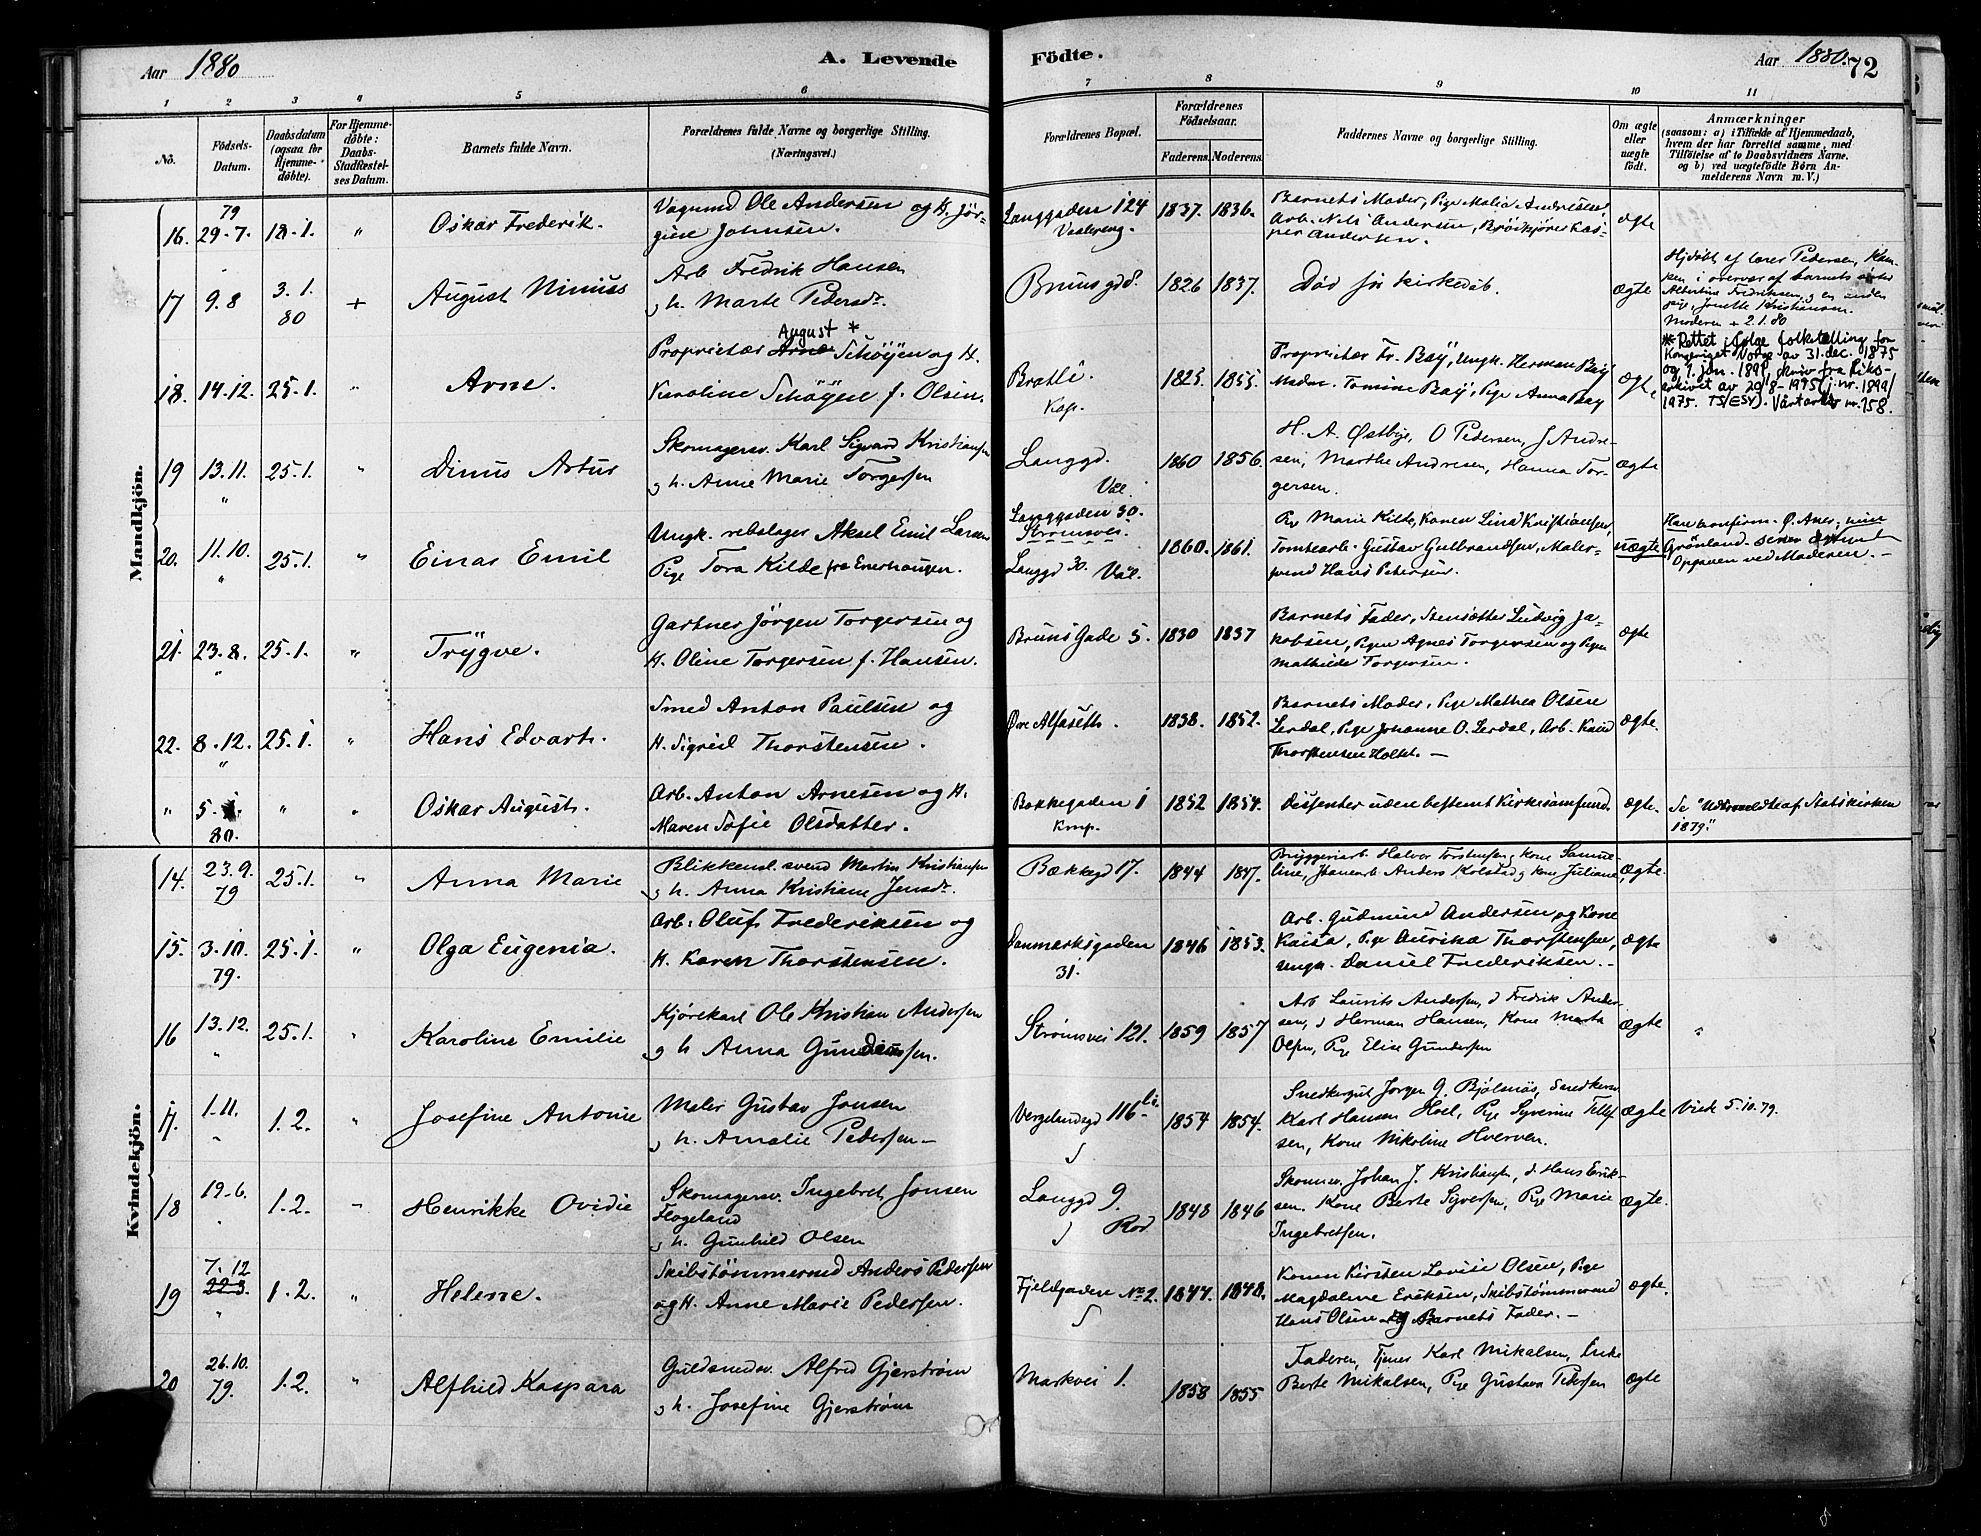 Aar 1880
A. Levende
Födte.
Aar 1880.
72
1 2 3 4 5 6 7 8 9 10 11
No.
Födsels-Datum.
Daabsdatum (ogsaa for Hjemme-döbte).
For Hjemme-döbte: Daabs-Stadfæstel-ses Datum.
Barnets fulde Navn.
Forældrenes fulde Navne og borgerlige Stilling.
(Næringsvei.)
Forældrenes Bopæl.
Forældrenes Födselsaar.
Faderens. Moderens.
Faddernes Navne og borgerlige Stilling.
Om ægte eller uægte födt.
Anmærkninger
(saasom: a) i Tilfælde af Hjemmedaab,
hvem der har forrettet samme, med
Tilföielse af to Daabsvidners Navne.
og b) ved uægtefödte Börn An-
melderens Navn m. V.)
Mandkjön.
16. 79 29-7. 18-1. " Oskar Frederik.
Vognmd Ole Andersen og H. Jör-
gine Johnsen.
Langgaden 124
Vaalereng.
1837. 1836.
Barnets Moder, Pige Malia Andresen,
Arb. Nils Andersen, Brödkjörer Kas-
per Andersen.
ægte
17 9.8 3.1. 80 + August Ninius
Arb Fredrik Hansen
g h. Marte Pedersdr.
Brunsgd 8.
1826 1837.
Död för kirkedåb.
ægte
Hjdöbt af lærer Pedersen, Kam-
pen, i overvær af barnets søster
Albertine Fredriksen, g en anden
pige, Jonette Kristiansen.
Moderen + 2.1.80
18. 14-12. 25-1. " Arne.
August *
Proprietær Arne Schöyen og H.
Karoline Schöyen f. Olsen.
Bratli
Kap.
1825. 1855.
Proprietær Fr. Bay, Ungk. Herman Bay
Madm. Tomine Bay, Pige Anna Bay
ægte,
* Rettet ifølge folketelling for
Kongeriket Norge av 31. dec. 1875
og 1. jan. 1891, skriv fra Riks-
arkivet av 20/8-1975 (j.nr. 1899/
1975. TS/ESV). Vårt arkiv nr. 158.
19 13.11. " 25.1. " Dinus Artur
Skomagersv. Karl Sigvard Kristiansen
g h. Anne Marie Torgersen
Langgd.
Vål.
1860 1856.
H. A. Østbye, O Pedersen, J Andre-
sen, Marthe Andresen, Hanna Tor-
gersen.
ægte
20. 11.10. " 25.1. " Einar Emil
Ungk. rebslager Aksel Emil Larsen
Pige Tora Kilde fra Enerhaugen.
Langgaden 30.
Strömsvei.
Langgd 30. Vål.
1860. 1861.
Pige Marie Kilde, Konen Lina Kristiansen,
Tomtearb. Gustav Gulbrandsen, Maler-
svend Hans Petersen.
uægte
Grönland.
Opgaven ved Moderen. —
21. 23.8. " 25.1. " Trÿgve.
Gartner Jörgen Torgersen og
H. Oline Torgersen f. Hansen.
Bruns Gade 5.
1830 1837
Barnets Fader, Stensætter Ludvig Ja-
kobsen, Pigen Agnes Torgersen og Pigen
Mathilde Torgersen.
ægte
22. 8.12. " 25.1. " Hans Edvart.
Smed Anton Paulsen og
H. Sigrid Thorstensen.
Øvre Alfaseth.
1838. 1852.
Barnets Moder, Pige Mathea Olsen
Lerdal, Pige Johanne O. Lerdal, Arb. Knud
Thorstensen Holtet. —
ægte.
" 5- 80. " " Oskar August.
Arb. Anton Arnesen og H.
Maren Sofie Olsdatter.
Bakkegaden 1
Kmp.
1852 1854.
Dissenter uden bestemt Kirkesamfund.
ægte.
Se "Udmeldte af Statskirken
1879."
Kvindekjön.
14. 23.9. 79 25.1. " Anna Marie
Blikkensl. svend Martin Kristiansen
g h. Anna Kristiane Jensdr.
Bækkegd 17.
1844 1847.
Bryggeriarb. Halvor Torstensen g kone Samue-
line, Jbanearb Anders Kolstad g kone Juliane
ægte.
15. 3.10. 79. 25.1. " Olga Eugenia.
Arb. Oluf Frederiksen og
H. Karen Thorstensen.
Danmarksgaden
31.
1846 1853.
Arb. Gudmund Andersen og Kone
Kaisa, Pige Aurika Thorstensen,
ungk. Daniel Frederiksen. —
ægte
16 13.12. " 25.1. " Karoline Emilie
Kjörekarl Ole Kristian Andersen
g h Anna Gundersen.
Strömsvei 121.
1859 1857
Arb Laurits Andersen, d Fredrik Ander-
sen, d Herman Hansen, Kone Marta
Olsen, Pige Elise Gundersen
ægte "
17. 1-11. " 1.2. " Josefine Antonie
Maler Gustav Jonsen
g h. Amalie Pedersen —
Vergelandsgd 116
1854 1854.
Snedkersvt Jörgen G. Bjölsnös, Snedkersv
Karl Hansen Hoel, Pige Syverine Tellef
sen, Kone Nikoline Hverven.
ægte
Viet 5.10.79.
18 19-6. 1.2. " Henrikke Ovidie
Skomagersv. Ingebret Jonsen
Flogeland
g h. Gunhild Olsen
Langgd 9.
Rod
1848 1846
Skomsv. Johan J. Kristiansen, d. Hans Erik-
sen. Kone Berte Syversen, Pige Marie
Ingebretsen.
ægte.
19 7.12 22.3. " 1.2. " Helene.
Skibstömmermd Anders Pedersen
og H. Anne Marie Pedersen.
Fjeldgaden No 2.
1844. 1848.
Konen Kirsten Lovise Olsen, Pige
Magdalene Eriksen, Skibstömmermd
Hans Olsen og Barnets Fader. —
ægte.
20 26.10. 79. 1.2. " Alfhild Kaspara
Guldsmedsv. Alfred Gjerström
g h. Josefine Gjerström
Markvei 1.
1858 1855
Faderen, Tjener Karl Mikalsen, Enke
Berte Mikalsen, Pige Gustava Pedersen
ægte